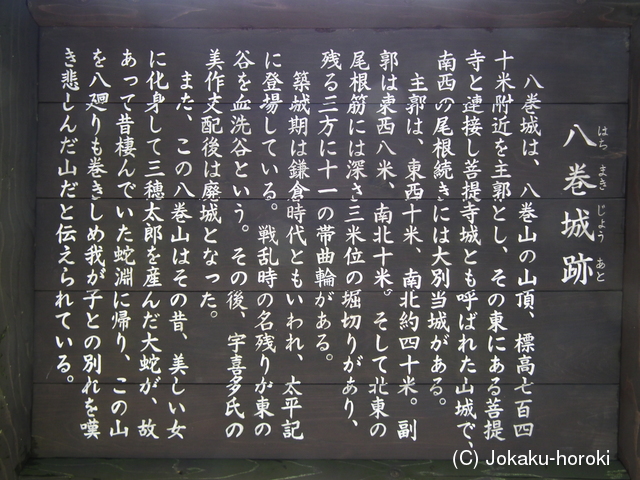 八巻城跡
はち まき じょう あと
八巻城は、八巻山の山頂、標高七百四
十米附近を主郭とし、その東にある菩提
寺と連接し菩提寺城とも呼ばれた山城で、
南西の尾根続きには大別当城がある。
主郭は、東西十米、南北約四十米。副
郭は東西八米、南北十米。そして北東の
尾根筋には深さ三米位の堀切りがあり、
残る三方に十一の帯曲輪がある。
築城期は鎌倉時代ともいわれ、太平記
に登場している。戦乱時の名残りが東の
谷を血洗谷という。その後、宇喜多氏の
美作支配後は廃城となった。
また、この八巻山はその昔、美しい女
に化身して三穂太郎を産んだ大蛇が、故
あって昔棲んでいた蛇淵に帰り、この山
を八廻りも巻きしめ我が子との別れを嘆
き悲しんだ山だと伝えられている。
(C) Jokaku-horoki